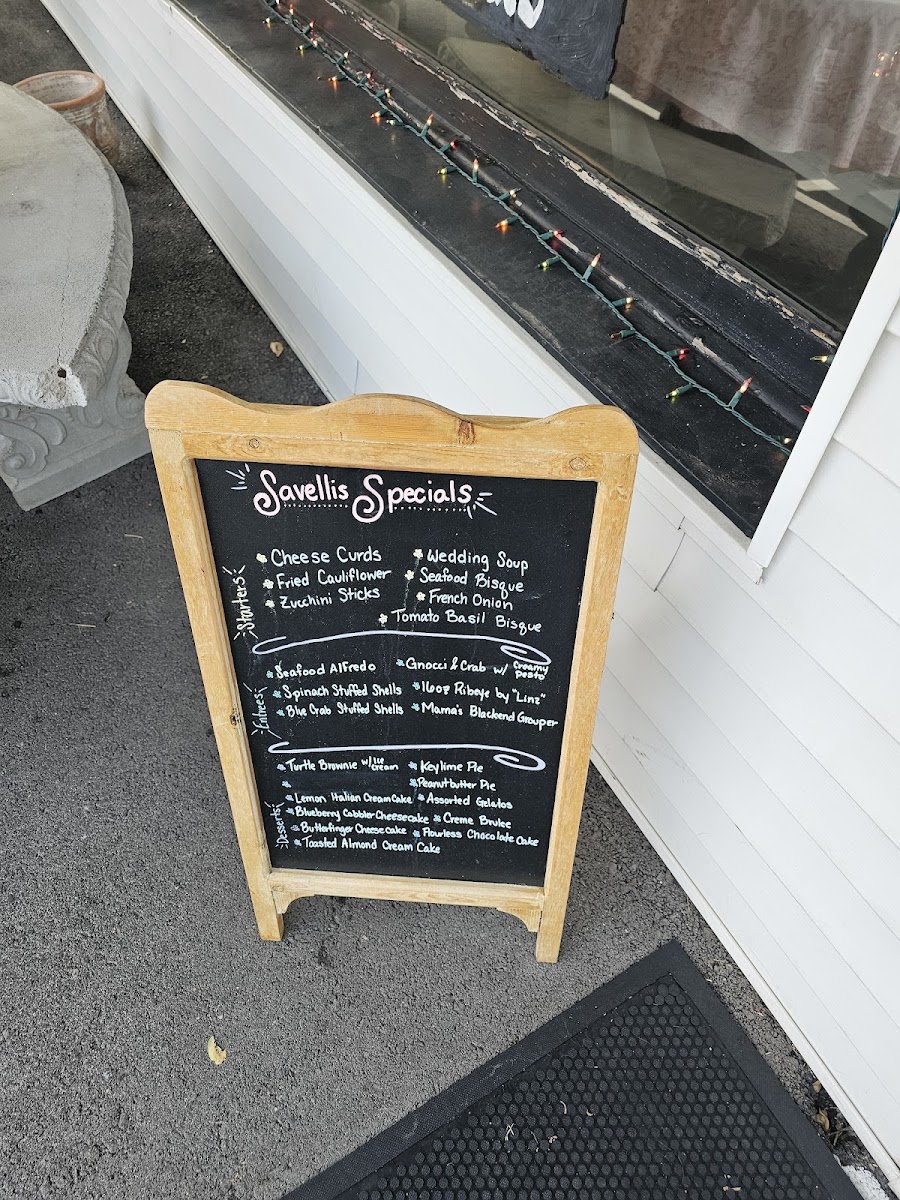 Savellis Specials
Starters
Cheese Curds
Fried Cauliflower
Zucchini Sticks
Wedding Soup
Seafood Bisque
French Onion
Tomato Basil Bisque
Entrees
Seafood Alfredo
Spinach Stuffed Shells
Blue Crab Stuffed Shells
Gnocci & Crab w/ Creamy pesto
16oz Ribeye by "Linz"
Mama's Blackend Grouper
Desserts
Turtle Brownie w/ Ice Cream
Lemon Italian Cream Cake
Blueberry Cobbler Cheesecake
Butterfinger Cheesecake
Toasted Almond Cream Cake
Keylime Pie
Peanutbutter Pie
Assorted Gelatos
Creme Brulee
Flourless Chocolate Cake